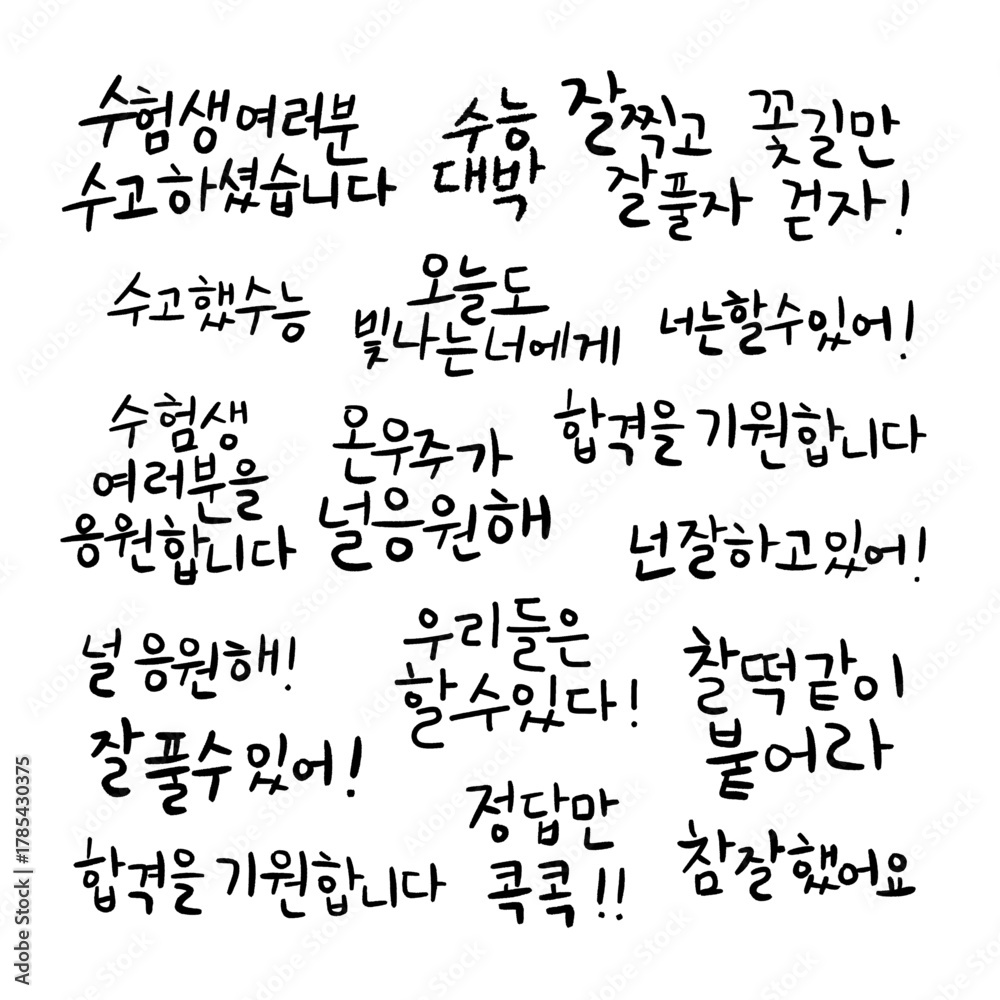 수험생여러분
수고하셨습니다
수능
대박
잘찍고
잘풀자
꽃길만
걷자!
수고했수능
오늘도
빛나는너에게
너는할수있어!
수험생
여러분을
응원합니다
온우주가
널응원해
합격을 기원합니다
넌잘하고있어!
널 응원해!
우리들은
할수있다!
찰떡같이
붙어라
잘풀수있어!
정답만
콕콕!!
합격을 기원합니다
참잘했어요
Adobe Stock | #1785430375